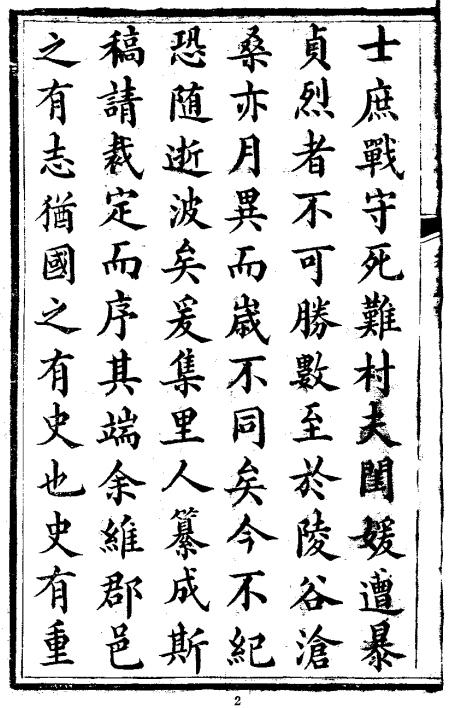 士庶戰守死難村夫閨媛遭暴
貞烈者不可勝數至於陵谷滄
桑亦月異而歲不同矣今不紀
恐随逝波矣爰集里人纂成斯
稿請裁定而序其端余維郡邑
之有志猶國之有史也史有重
2